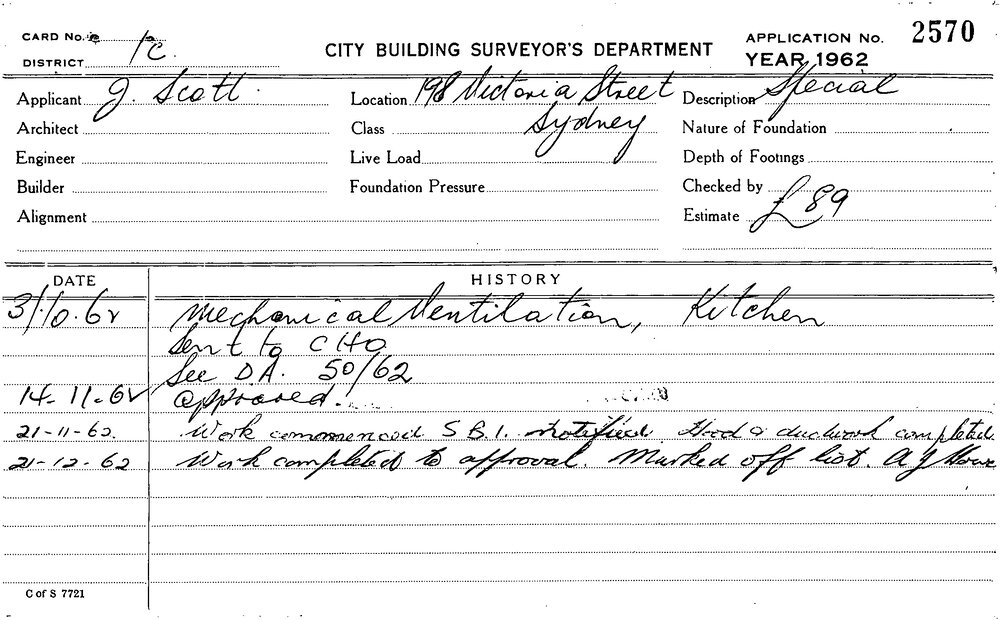 CARD No.
DISTRICT 1C.
CITY BUILDING SURVEYOR'S DEPARTMENT
APPLICATION No. 2570
YEAR 1962
Applicant J. Scott. Location 198 Victoria Street Description Special
Architect Class Sydney Nature of Foundation
Engineer Live Load Depth of Footings
Builder Foundation Pressure Checked by
Alignment Estimate £ 89
DATE HISTORY
31.10.62 Mechanical Ventilation, Kitchen
Sent to CHO
See D.A. 50/62
14-11-62 approved.
21-11-62. Work commenced S B I. notified. Hood & ductwork completed.
21-12-62 Work completed to approval. Marked off list. A J
C of S 7721